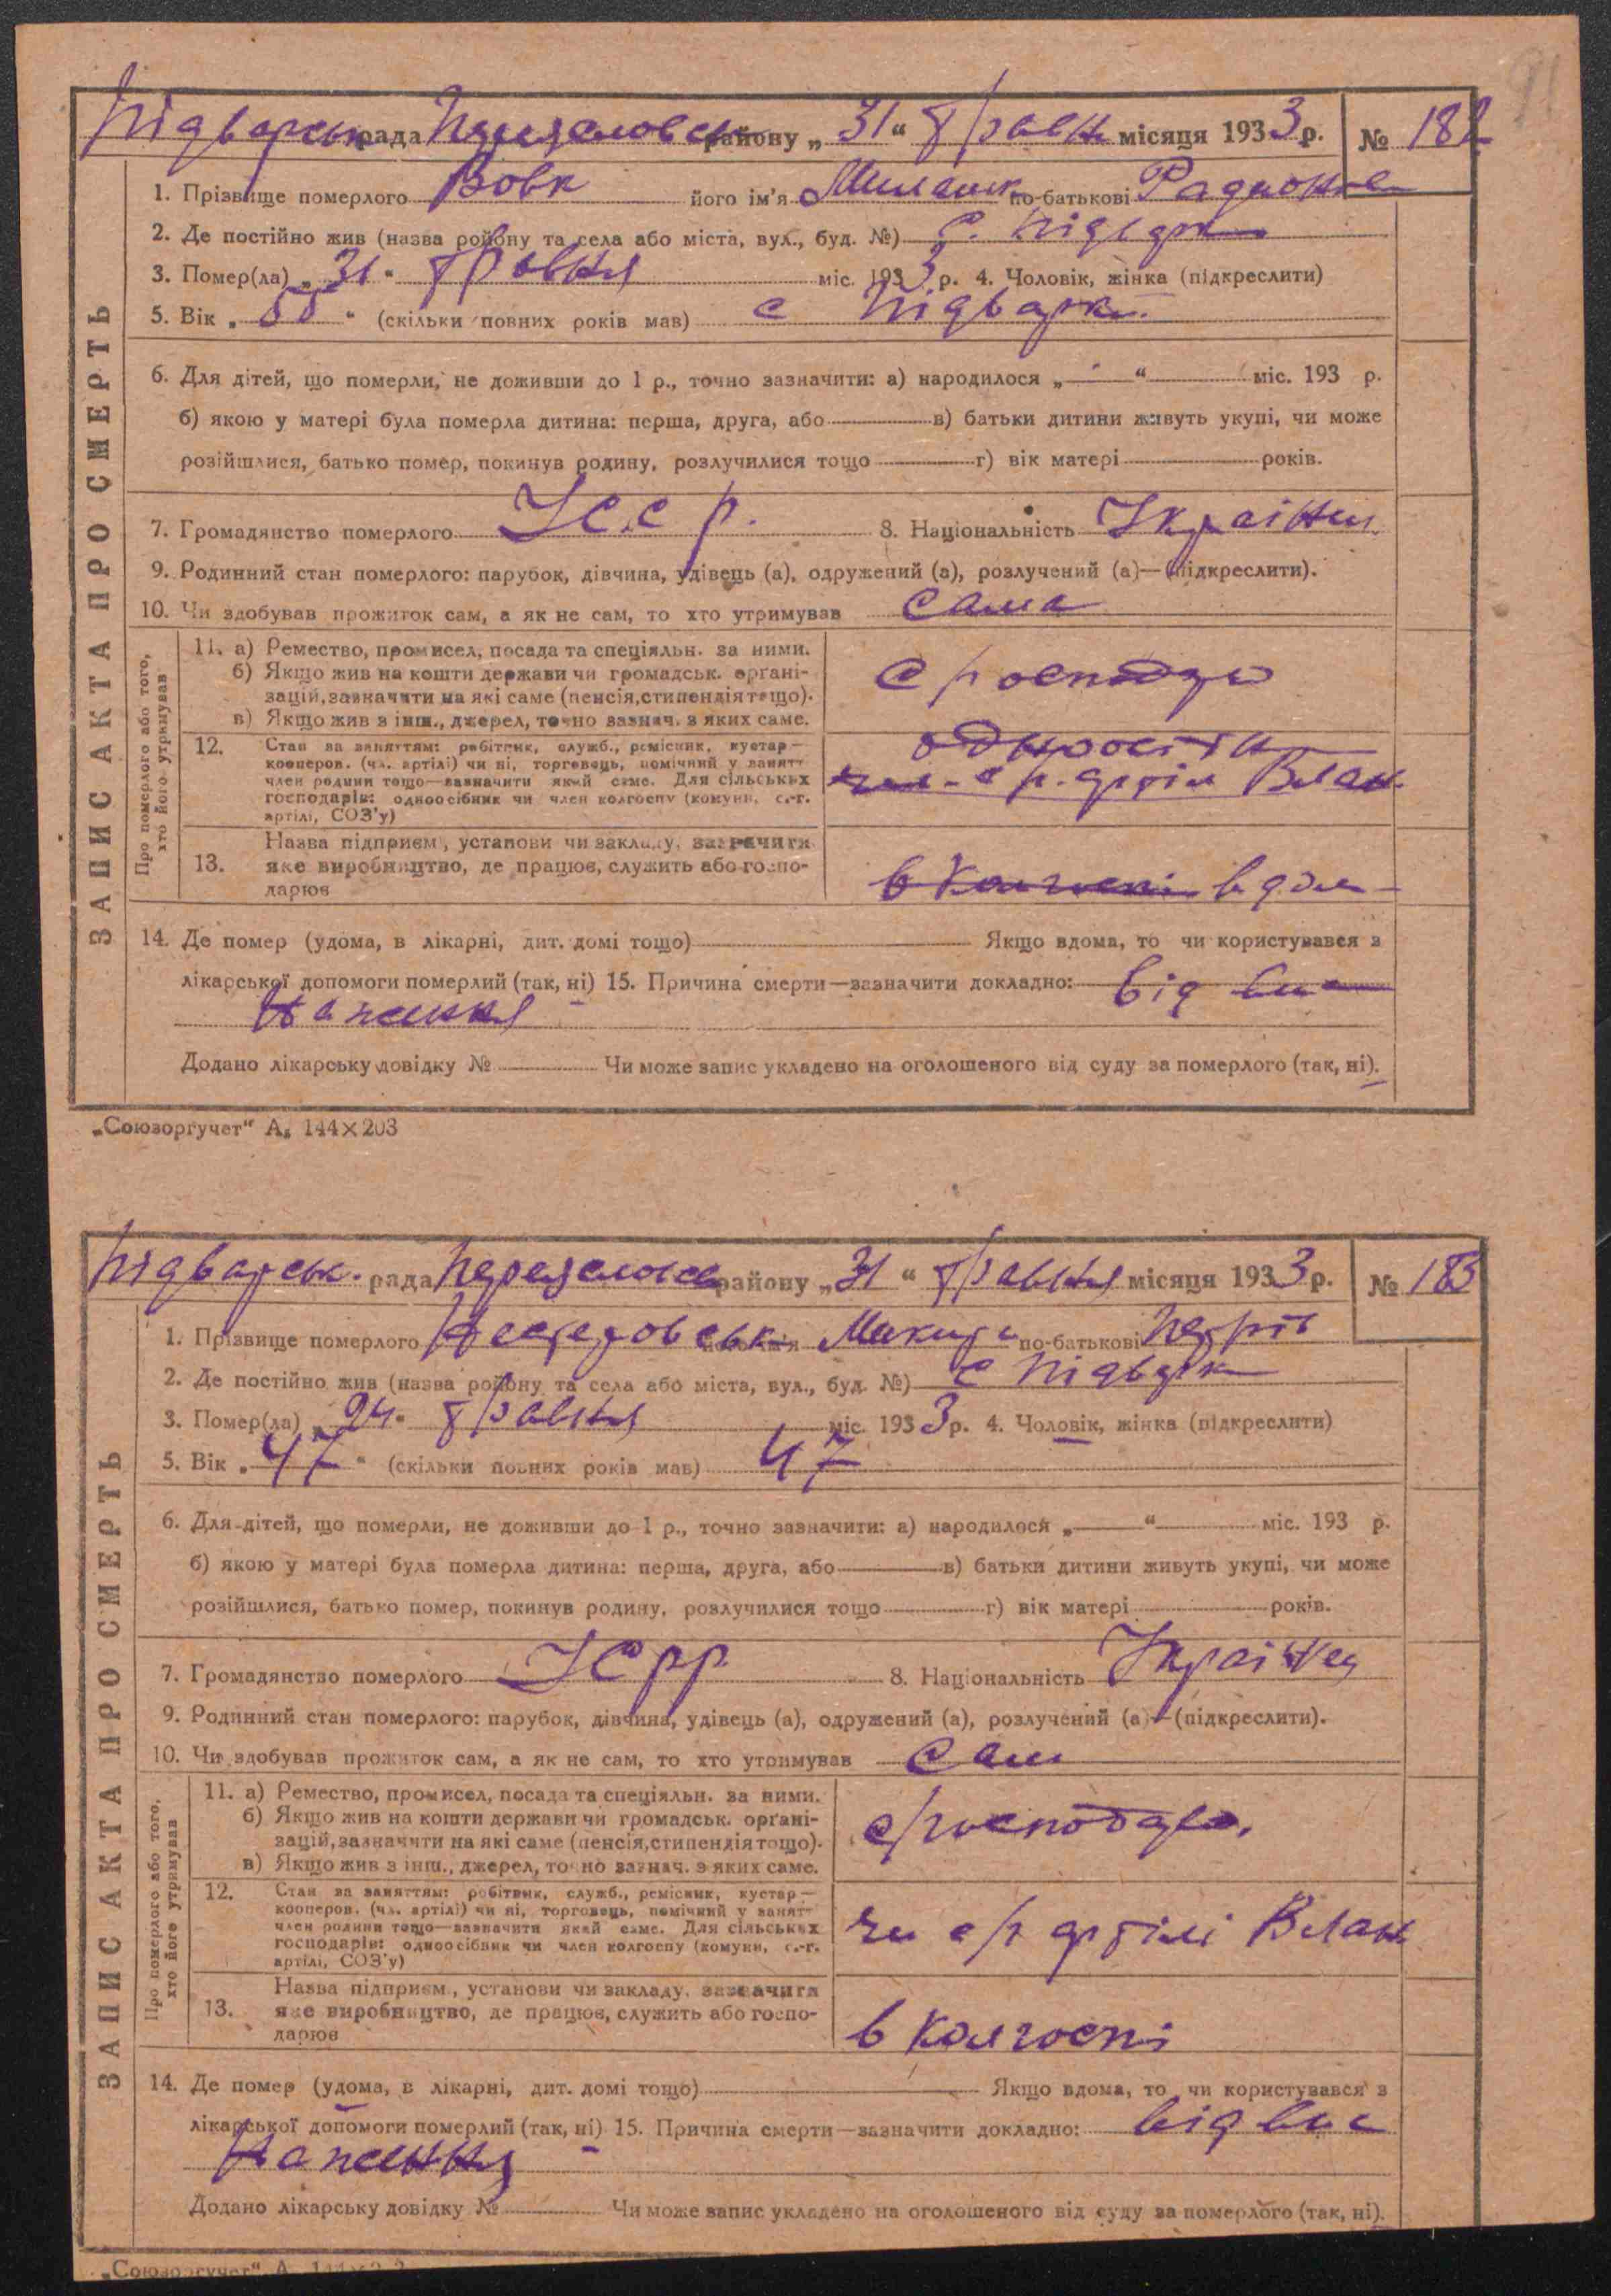 Підварськ рада Переяславськ району „31“ травня місяця 1933 р. № 182
1. Прізвище померлого Вовк його ім'я по-батькові
2. Де постійно жив (назва району та села або міста, вул., буд. №) с. Підварк
3. Помер(ла) „31“ травня міс. 1933 р. 4. Чоловік, жінка (підкреслити)
5. Вік „55“ (скільки повних років мав) с Підварк.
6. Для дітей, що померли, не доживши до 1 р., точно зазначити: а) народилося „—“ міс. 193 р.
б) якою у матері була померла дитина: перша, друга, або в) батьки дитини живуть укупі, чи може
розійшлися, батько помер, покинув родину, розлучилися тощо г) вік матері років.
7. Громадянство померлого УССР. 8. Національність Українк.
9. Родинний стан померлого: парубок, дівчина, удівець (а), одружений (а), розлучений (а)—(підкреслити).
10. Чи здобував прожиток сам, а як не сам, то хто утримував сама
ЗАПИС АКТА ПРО СМЕРТЬ
Про померлого або того, хто його утримував
11. а) Ремество, промисел, посада та спеціяльн. за ними.
б) Якщо жив на кошти держави чи громадськ. орґані-
зацій, зазначити на які саме (пенсія, стипендія тощо).
в) Якщо жив з інш., джерел, точно зазнач. з яких саме.
12. Стан за заняттям: робітник, служб., ремісник, кустар—
кооперов. (чл. артілі) чи ні, торговець, помічний у занятт
член родини тощо—зазначити який саме. Для сільських
господарів: одноосібник чи член колгоспу (комуни, с.-г.
артілі, СОЗ'у)
с/г артіли Влан.
13. Назва підприєм., установи чи закладу, зазначити
яке виробництво, де працює, служить або госпо-
дарює
в колгоспі вдом
14. Де помер (удома, в лікарні, дит. домі тощо) Якщо вдома, то чи користувався з
лікарської допомоги померлий (так, ні) 15. Причина смерти—зазначити докладно: від вис
наження
Додано лікарську довідку № Чи може запис укладено на оголошеного від суду за померлого (так, ні).
„Союзоргучет“ А₅ 144×203
Підварськ. рада Переяславськ району „31“ травня місяця 1933 р. № 183
1. Прізвище померлого його ім'я Микита по-батькові Петрів
2. Де постійно жив (назва району та села або міста, вул., буд. №) с Підварк
3. Помер(ла) „24“ травня міс. 1933 р. 4. Чоловік, жінка (підкреслити)
5. Вік „47“ (скільки повних років мав) 47
6. Для дітей, що померли, не доживши до 1 р., точно зазначити: а) народилося „—“ міс. 193 р.
б) якою у матері була померла дитина: перша, друга, або в) батьки дитини живуть укупі, чи може
розійшлися, батько помер, покинув родину, розлучилися тощо г) вік матері років.
7. Громадянство померлого УСРР 8. Національність Українец
9. Родинний стан померлого: парубок, дівчина, удівець (а), одружений (а), розлучений (а)—(підкреслити).
10. Чи здобував прожиток сам, а як не сам, то хто утримував сам
ЗАПИС АКТА ПРО СМЕРТЬ
Про померлого або того, хто його утримував
11. а) Ремество, промисел, посада та спеціяльн. за ними.
б) Якщо жив на кошти держави чи громадськ. орґані-
зацій, зазначити на які саме (пенсія, стипендія тощо).
в) Якщо жив з інш., джерел, точно зазнач. з яких саме.
с/господар.
12. Стан за заняттям: робітник, служб., ремісник, кустар—
кооперов. (чл. артілі) чи ні, торговець, помічний у занятт
член родини тощо—зазначити який саме. Для сільських
господарів: одноосібник чи член колгоспу (комуни, с.-г.
артілі, СОЗ'у)
чл с/г артілі Влан
13. Назва підприєм., установи чи закладу, зазначити
яке виробництво, де працює, служить або госпо-
дарює
в колгоспі
14. Де помер (удома, в лікарні, дит. домі тощо) Якщо вдома, то чи користувався з
лікарської допомоги померлий (так, ні) 15. Причина смерти—зазначити докладно: від вис
наження
Додано лікарську довідку № Чи може запис укладено на оголошеного від суду за померлого (так, ні).
„Союзоргучет“ А